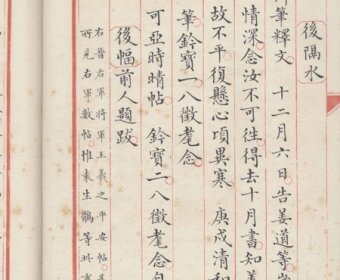 後隔水
御筆釋文 十二月六日告姜道等歲
情深念汝不可往得去十月書知姜
故不平復懸心頃異寒 庚戌清和
筆 鈐寶一 八徵耄念
可亞時晴帖 鈐寶二 八徵耄念 自
後幅前人題跋
右晉右軍將軍王羲之平安帖
所見右軍數帖惟袁生鵝等